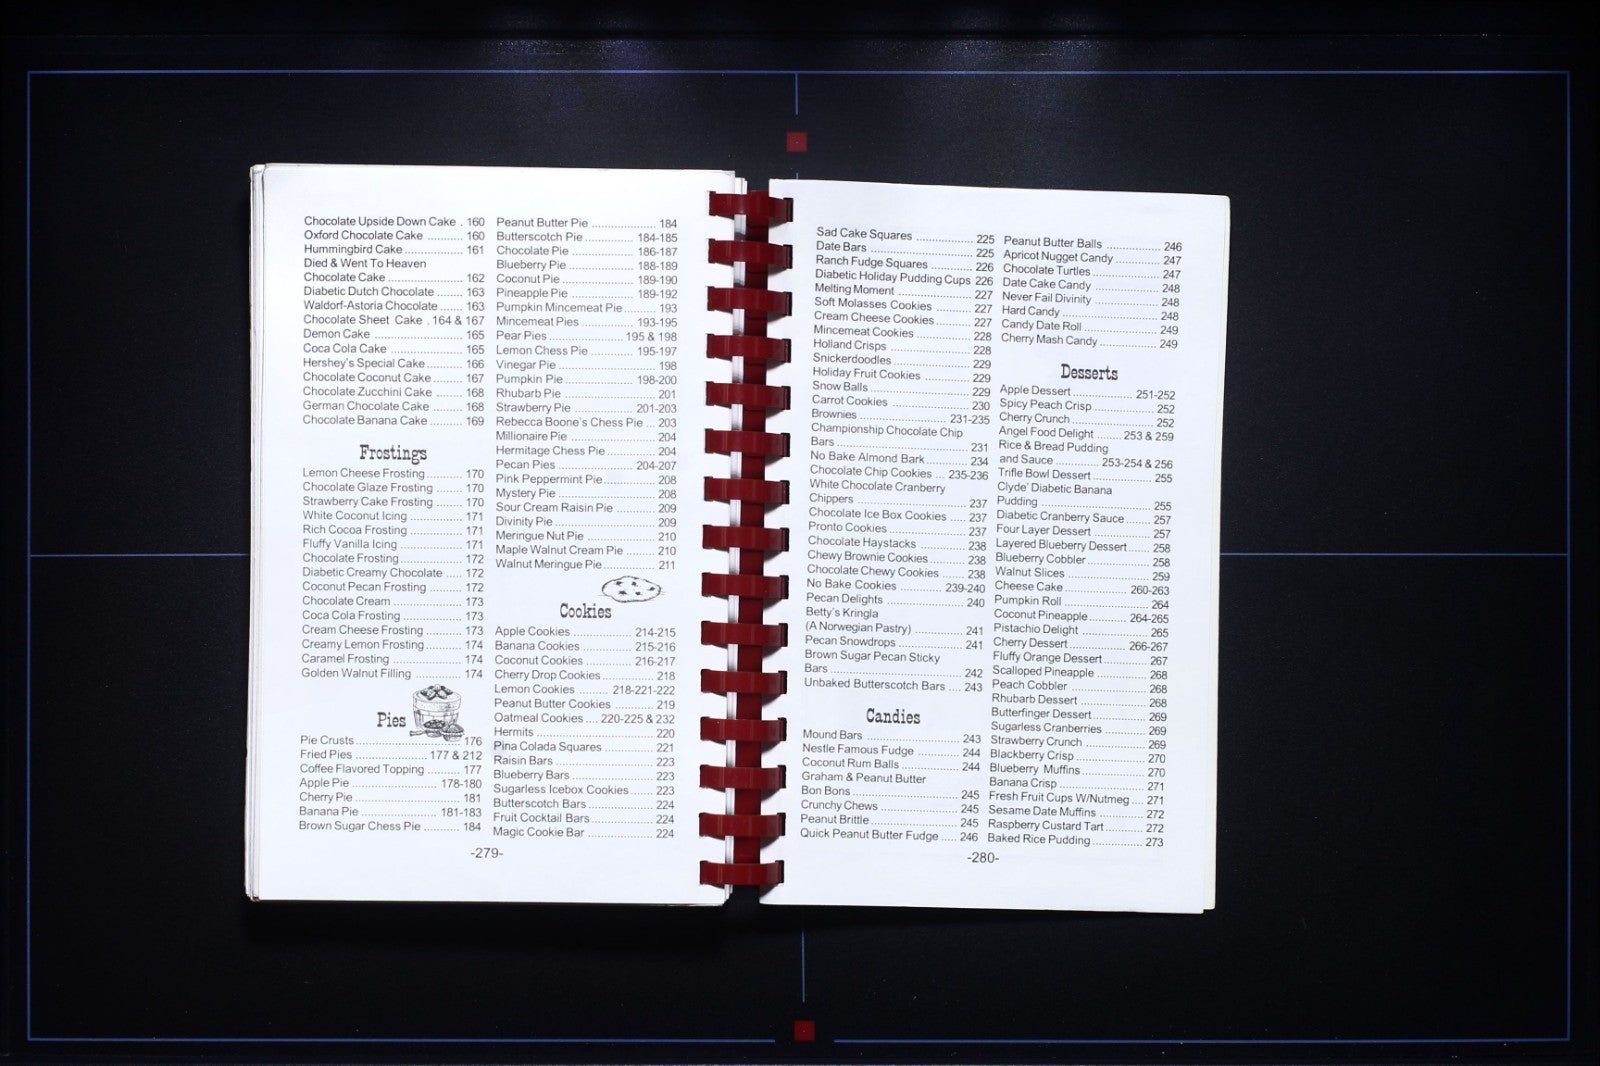 Chocolate Upside Down Cake . 160
Oxford Chocolate Cake .......... 160
Hummingbird Cake ................ 161
Died & Went To Heaven
Chocolate Cake ..................... 162
Diabetic Dutch Chocolate ........ 163
Waldorf-Astoria Chocolate ...... 163
Chocolate Sheet Cake . 164 & 167
Demon Cake ......................... 165
Coca Cola Cake ..................... 165
Hershey's Special Cake .......... 166
Chocolate Coconut Cake ......... 167
Chocolate Zucchini Cake ........ 168
German Chocolate Cake ......... 168
Chocolate Banana Cake .......... 169
Frostings
Lemon Cheese Frosting ........... 170
Chocolate Glaze Frosting ........ 170
Strawberry Cake Frosting ....... 170
White Coconut Icing ............... 171
Rich Cocoa Frosting ............... 171
Fluffy Vanilla Icing .................. 171
Chocolate Frosting .................. 172
Diabetic Creamy Chocolate ..... 172
Coconut Pecan Frosting .......... 172
Chocolate Cream .................... 173
Coca Cola Frosting ................. 173
Cream Cheese Frosting ........... 173
Creamy Lemon Frosting .......... 174
Caramel Frosting .................... 174
Golden Walnut Filling .............. 174
Pies
Pie Crusts .............................. 176
Fried Pies ..................... 177 & 212
Coffee Flavored Topping ......... 177
Apple Pie ........................ 178-180
Cherry Pie .............................. 181
Banana Pie ..................... 181-183
Brown Sugar Chess Pie .......... 184
Peanut Butter Pie .................... 184
Butterscotch Pie ............... 184-185
Chocolate Pie ................... 186-187
Blueberry Pie .................... 188-189
Coconut Pie ...................... 189-190
Pineapple Pie .................... 189-192
Pumpkin Mincemeat Pie .......... 193
Mincemeat Pies ................ 193-195
Pear Pies ...................... 195 & 198
Lemon Chess Pie .............. 195-197
Vinegar Pie ............................. 198
Pumpkin Pie ..................... 198-200
Rhubarb Pie ............................ 201
Strawberry Pie .................. 201-203
Rebecca Boone's Chess Pie ... 203
Millionaire Pie .......................... 204
Hermitage Chess Pie ............... 204
Pecan Pies ....................... 204-207
Pink Peppermint Pie ................. 208
Mystery Pie ............................. 208
Sour Cream Raisin Pie ............. 209
Divinity Pie .............................. 209
Meringue Nut Pie ..................... 210
Maple Walnut Cream Pie .......... 210
Walnut Meringue Pie ................. 211
Cookies
Apple Cookies .................. 214-215
Banana Cookies ................ 215-216
Coconut Cookies ............... 216-217
Cherry Drop Cookies ................ 218
Lemon Cookies ......... 218-221-222
Peanut Butter Cookies ............. 219
Oatmeal Cookies .... 220-225 & 232
Hermits ................................... 220
Pina Colada Squares ............... 221
Raisin Bars ............................. 223
Blueberry Bars ........................ 223
Sugarless Icebox Cookies ........ 223
Butterscotch Bars .................... 224
Fruit Cocktail Bars ................... 224
Magic Cookie Bar .................... 224
-279-
Sad Cake Squares .................. 225
Date Bars ............................... 225
Ranch Fudge Squares ............. 226
Diabetic Holiday Pudding Cups 226
Melting Moment ....................... 227
Soft Molasses Cookies ............. 227
Cream Cheese Cookies ............ 227
Mincemeat Cookies .................. 228
Holland Crisps ......................... 228
Snickerdoodles ........................ 229
Holiday Fruit Cookies ............... 229
Snow Balls .............................. 229
Carrot Cookies ........................ 230
Brownies .......................... 231-235
Championship Chocolate Chip
Bars ....................................... 231
No Bake Almond Bark .............. 234
Chocolate Chip Cookies ... 235-236
White Chocolate Cranberry
Chippers ................................. 237
Chocolate Ice Box Cookies ...... 237
Pronto Cookies ........................ 237
Chocolate Haystacks ............... 238
Chewy Brownie Cookies ........... 238
Chocolate Chewy Cookies ....... 238
No Bake Cookies .............. 239-240
Pecan Delights ........................ 240
Betty's Kringla
(A Norwegian Pastry) ............... 241
Pecan Snowdrops .................... 241
Brown Sugar Pecan Sticky
Bars ....................................... 242
Unbaked Butterscotch Bars ..... 243
Candies
Mound Bars ............................. 243
Nestle Famous Fudge .............. 244
Coconut Rum Balls .................. 244
Graham & Peanut Butter
Bon Bons ................................ 245
Crunchy Chews ....................... 245
Peanut Brittle .......................... 245
Quick Peanut Butter Fudge ..... 246
Peanut Butter Balls ................. 246
Apricot Nugget Candy .............. 247
Chocolate Turtles .................... 247
Date Cake Candy .................... 248
Never Fail Divinity ................... 248
Hard Candy ............................. 248
Candy Date Roll ...................... 249
Cherry Mash Candy ................. 249
Desserts
Apple Dessert ................... 251-252
Spicy Peach Crisp ................... 252
Cherry Crunch ......................... 252
Angel Food Delight ....... 253 & 259
Rice & Bread Pudding
and Sauce .............. 253-254 & 256
Trifle Bowl Dessert ................... 255
Clyde' Diabetic Banana
Pudding .................................. 255
Diabetic Cranberry Sauce ........ 257
Four Layer Dessert .................. 257
Layered Blueberry Dessert ....... 258
Blueberry Cobbler .................... 258
Walnut Slices .......................... 259
Cheese Cake .................... 260-263
Pumpkin Roll ........................... 264
Coconut Pineapple ............ 264-265
Pistachio Delight ..................... 265
Cherry Dessert .................. 266-267
Fluffy Orange Dessert .............. 267
Scalloped Pineapple ................ 268
Peach Cobbler ........................ 268
Rhubarb Dessert ..................... 268
Butterfinger Dessert ................. 269
Sugarless Cranberries ............. 269
Strawberry Crunch ................... 269
Blackberry Crisp ...................... 270
Blueberry Muffins .................... 270
Banana Crisp .......................... 271
Fresh Fruit Cups W/Nutmeg .... 271
Sesame Date Muffins ............... 272
Raspberry Custard Tart ............ 272
Baked Rice Pudding ................ 273
-280-